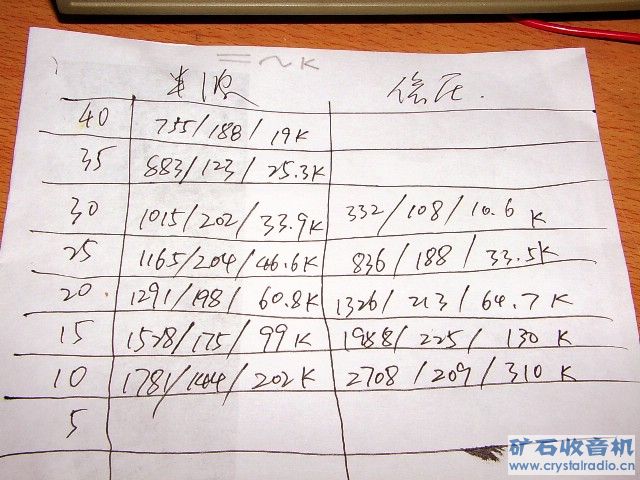 =~K
半波 倍压.
40 755/188/19K
35 883/123/25.3K
30 1015/202/33.9K 332/108/10.6K
25 1165/204/46.6K 836/188/33.5K
20 1291/198/60.8K 1326/213/64.7K
15 1528/175/99K 1988/225/130K
10 1781/144/202K 2708/209/310K
5
矿石收音机
www.crystalradio.cn